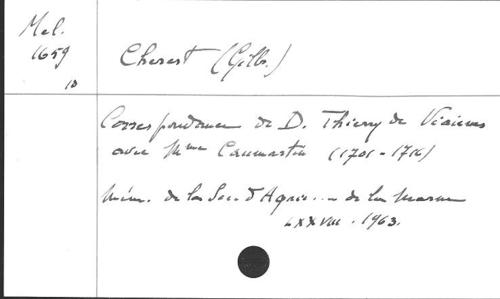 Mel.
1659
10
Cherest (Gilb.)
Correspondance de D. Thierry de Viaixnes
avec Mme Caumartin (1701-1716)
Mém. de la Soc. d'Agric... de la Marne
LXXVIII. 1963.